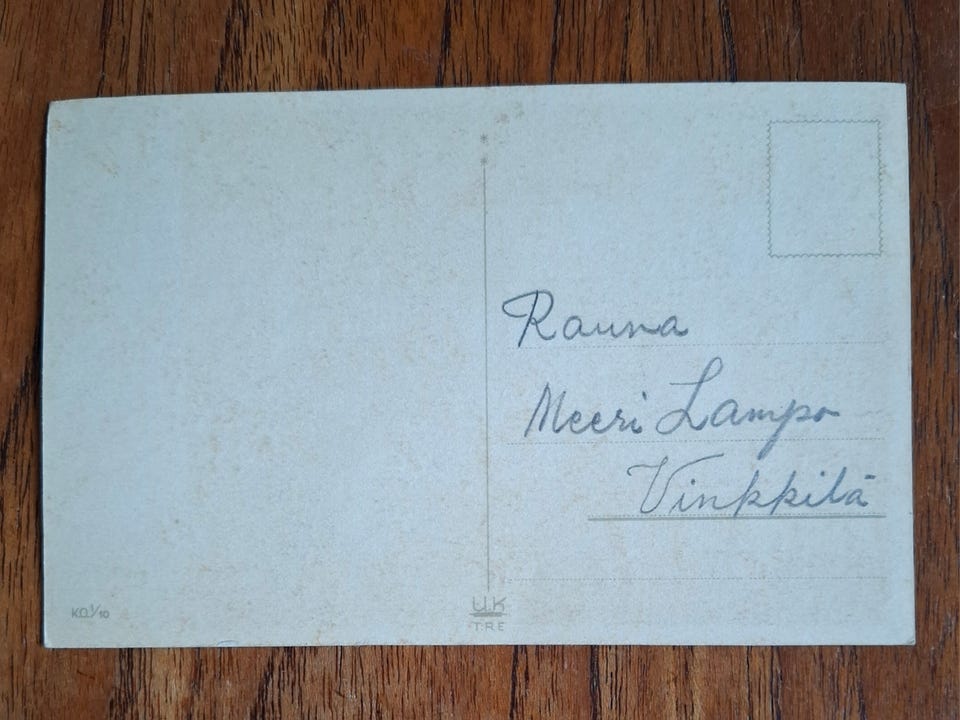 Rauna
Meeri Lampo
Vinkkilä
K.O. 1/10
U.K
T:R E